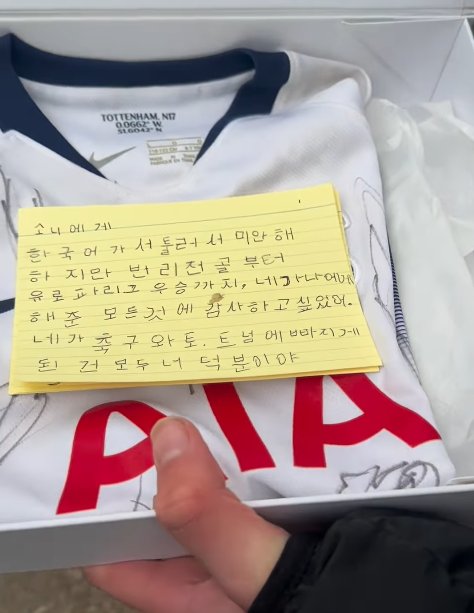 TOTTENHAM, N17
0.0662° W.
51.6042° N.
소니에게
한국어가 서툴러서 미안해
하지만 번리전 골부터
유로파리그 우승까지, 네가 나에게
해준 모든것에 감사하고싶었어.
네가 축구와 토.트넘에 빠지게
된 건 모두 너 덕분이야
AIA